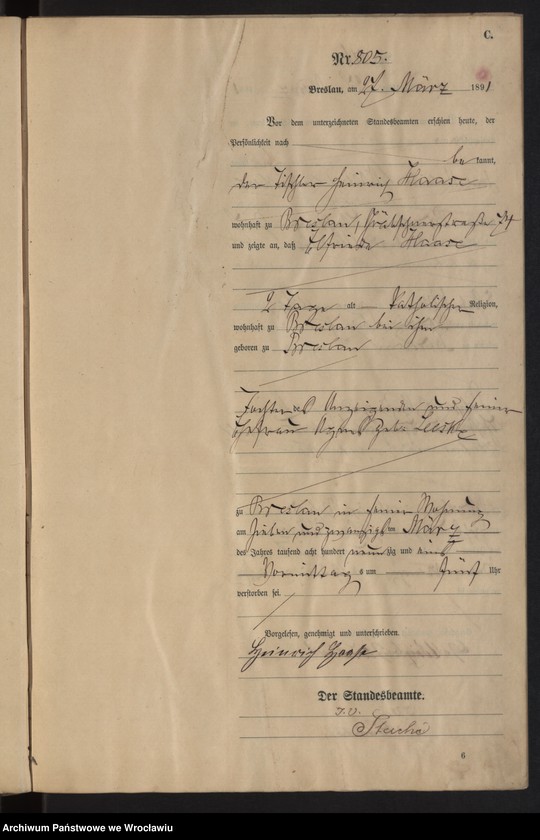 C.
Nr. 805.
Breslau, am 27. März 1891
Vor dem unterzeichneten Standesbeamten erschien heute, der
Persönlichkeit nach
be kannt,
der Tischler Heinrich Haase
wohnhaft zu Breslau,
und zeigte an, daß Elfriede Haase
2 Tage alt katholischer Religion,
wohnhaft zu Breslau bei ihm
geboren zu Breslau
Tochter des Anzeigenden und seiner
Ehefrau Agnes geb.
zu Breslau in seiner Wohnung
am sieben und zwanzigsten März
des Jahres tausend acht hundert neun zig und eins
Vormittags um fünf Uhr
verstorben sei.
Vorgelesen, genehmigt und unterschrieben.
Heinrich Haase
Der Standesbeamte.
I.V.
6
Archiwum Państwowe we Wrocławiu